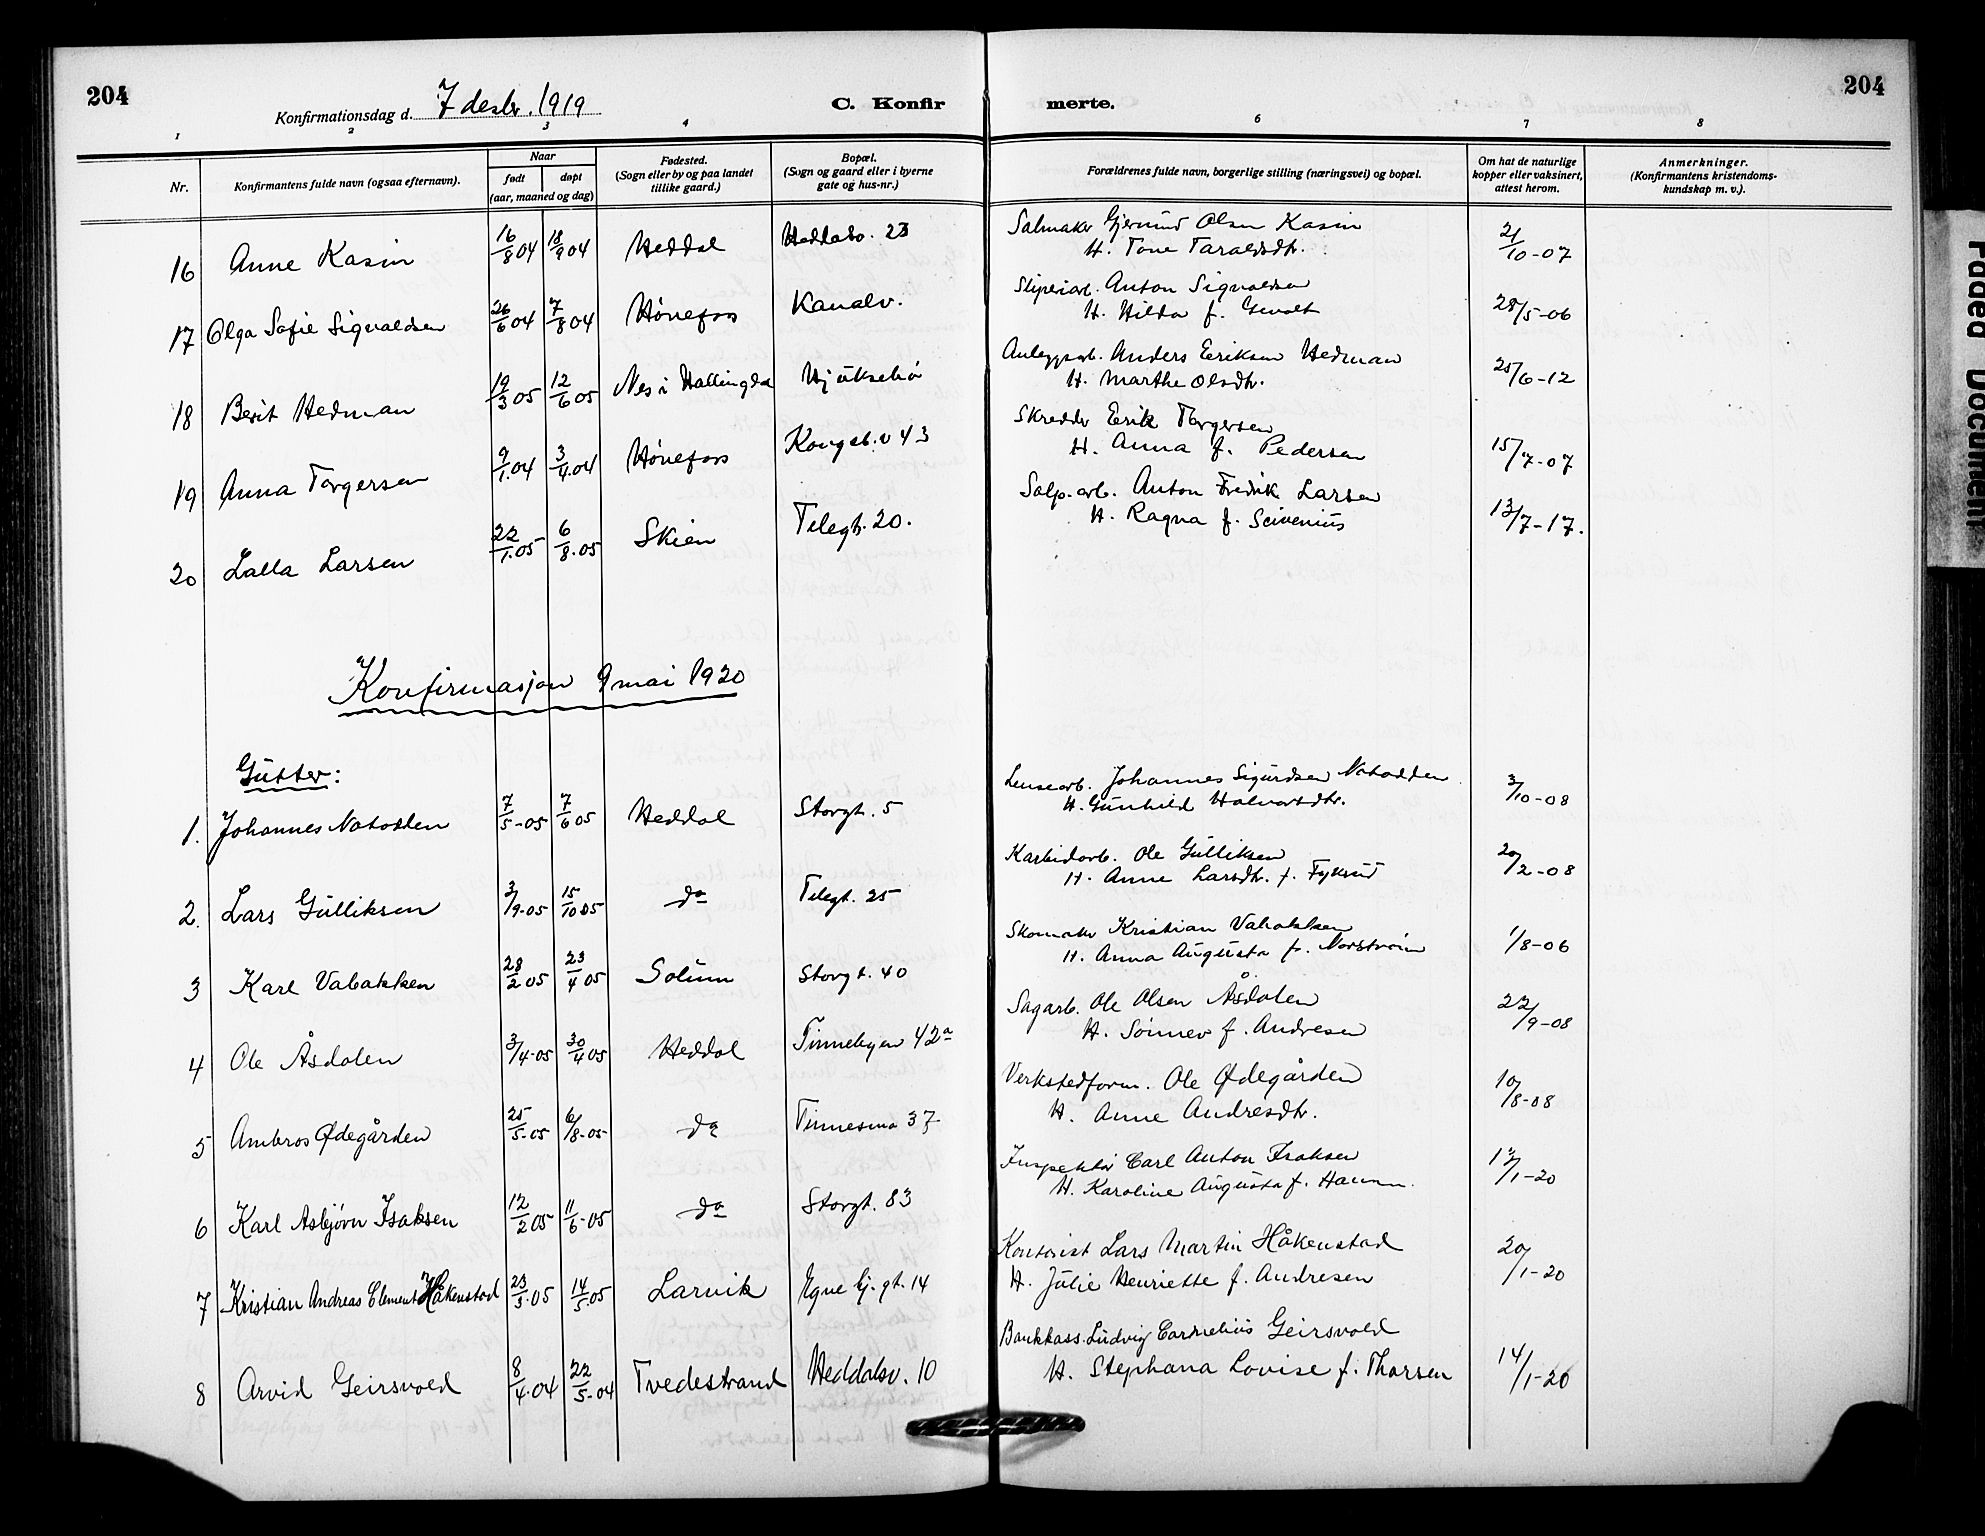 204
Konfirmationsdag d. 7 desbr. 1919
C. Konfir
merte.
204
1 2 3 4 6 7 8
Nr.
Konfirmantens fulde navn (ogsaa efternavn).
Naar
født døpt
(aar, maaned og dag)
Fødested.
(Sogn eller by og paa landet
tillike gaard.)
Bopæl.
(Sogn og gaard eller i byerne
gate og hus-nr.)
Forældrenes fulde navn, borgerlige stilling (næringsvei) og bopæl.
Om hat de naturlige
kopper eller vaksinert,
attest herom.
Anmerkninger.
(Konfirmantens kristendoms-
kundskap m. v.).
16 Anne Kasin 16/8 04 18/9 04 Heddal Heddalsv. 23 Salmakr Gjermund Olsen Kasin
H. Tone Taraldsdtr. 21/10-07
17 Olga Sofie Sigvaldsen 26/6 04 7/8 04 Hønefoss Kanalv. Sliperiarb. Anton Sigvaldsen
H. Hilda f. 28/5-06
18 Berit Hedman 19/3 05 12/6 05 Nes i Hallingdal Hjuksebø Anleggsarb. Anders Eriksen Hedman
H. Marthe Olsdtr. 25/6-12
19 Anna Torgersen 9/1.04 3/4.04 Hønefoss Kongsb.v 43 Skreddr Erik Torgersen
H. Anna f. Pedersen 15/7-07
20 Lalla Larsen 22/1.05 6/8.05 Skien Telegt. 20. Salp.arb. Anton Fredrik Larsen
H. Ragna f. Scivenius 13/7-17.
Konfirmasjon 9 mai 1920
Gutter:
1. Johannes Notodden 7/5-05 7/6 05 Heddal Storgt. 5 Lensearb. Johannes Sigurdsen Notodden
H. Gunhild Halvorsdtr. 3/10-08
2. Lars Gulliksen 3/9-05 15/10 05 do Telegt. 25 Karbidarb. Ole Gulliksen
H. Anne Larsdtr. f. Fyksrud 20/2-08
3 Karl Vabakken 28/2 05 23/4 05 Solum Storgt. 40 Skomakr Kristian Vabakken
H. Anna Augusta f. Norstrøm 1/8-06
4 Ole Åsdalen 3/4-05 30/4 05 Heddal Tinnebyen 42a Sagarb. Ole Olsen Åsdalen
H. Sønnev f. Andresen 22/9-08
5 Ambros Ødegården 25/5-05 6/8-05 do Tinnesmo 37 Verkstedform. Ole Ødegården
H. Anne Andresdtr. 10/8-08
6 Karl Asbjørn Isaksen 12/2 05 11/6-05 do Storgt. 83 Inspektør Carl Anton Isaksen
H. Karoline Augusta f. 13/1-20
7 Kristian Andreas Clement Håkenstad 23/3.05 14/5.05 Larvik Egne hj.gt. 14 Kontorist Lars Martin Håkenstad
H. Julie Henriette f. Andresen 20/1-20
8 Arvid Geirsvold 8/4.04 22/5-04 Tvedestrand Heddalsv. 10 Bankkass. Ludvig Cornelius Geirsvold
H. Stephana Lovise f. Thorsen 14/1-20
Faded Document